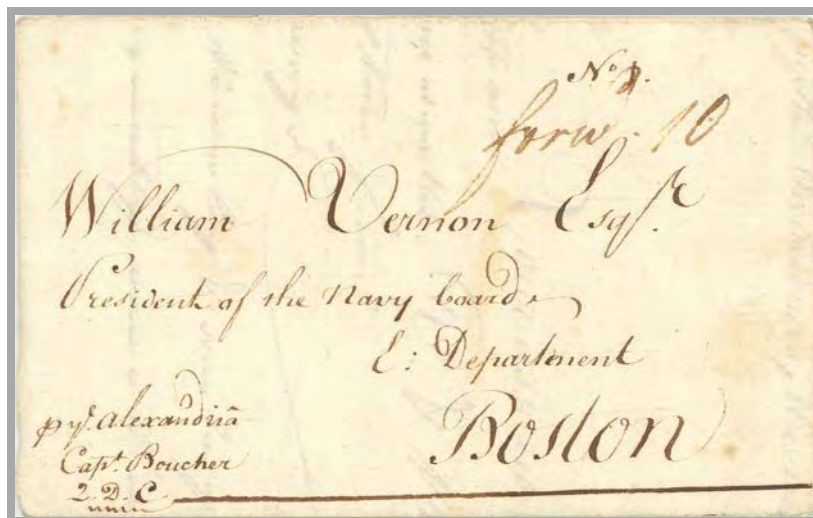 No. 1.
forw. 10
William Vernon Esqr.
President of the Navy board
E: Department
Boston
p yr. Alexandriā
Capt. Boucher
2. D. C.